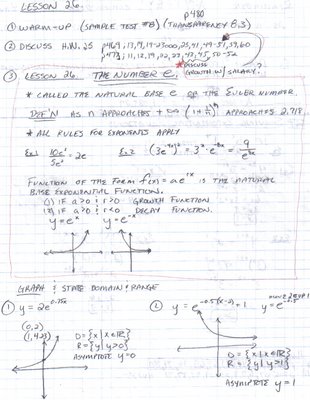 LESSON 26.
p480
① WARM-UP (SAMPLE TEST #8) (TRANSPARENCY 8.3)
② DISCUSS H.W. 25 p469, 13, 17, 19-23 ODD, 25, 41, 49-51, 59, 60
p473, 11, 12, 19, 22, 27, 43, 45, 50-52
* DISCUSS
GROWTH W/ SALARY.?
③ LESSON 26. THE NUMBER e.
* CALLED THE NATURAL BASE e OR THE EULER NUMBER.
DEF'N AS n APPROACHES +∞ (1+1/n)^n APPROACHES 2.718
* ALL RULES FOR EXPONENTS APPLY
Ex1 10e³/5e² = 2e Ex2 (3e^-4x)² = 3²·e^-8x = 9/e^8x
FUNCTION OF THE FORM f(x) = ae^rx IS THE NATURAL
BASE EXPONENTIAL FUNCTION.
(1) IF a>0 & r>0 GROWTH FUNCTION
(2) IF a>0 & r<0 DECAY FUNCTION.
y=e^x y=e^-x
GRAPH & STATE DOMAIN & RANGE
① y=2e^0.75x
② y=e^-0.5(x-2)+1
(0,2)
(1,4.23)
D={x|x∈ℝ}
R={y|y>0}
ASYMPTOTE y=0
D={x|x∈ℝ}
R={y|y>1}
ASYMPTOTE y=1